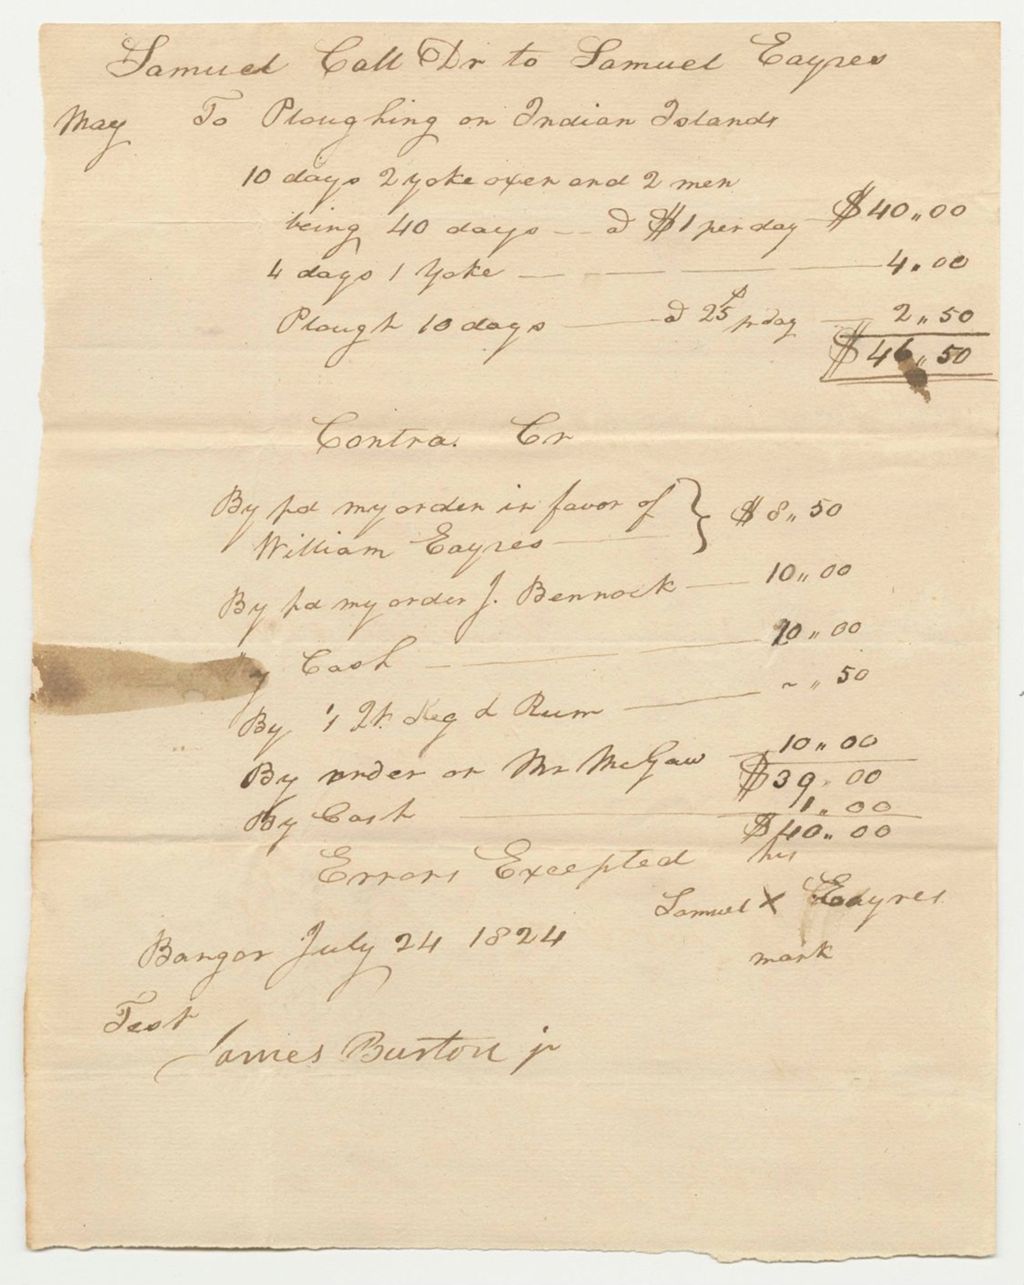 Samuel Call Dr to Samuel Eayres
May To Ploughing on Indian Islands
10 days 2 yoke oxen and 2 men
being 40 days — @ $1 per day $40,,00
4 days 1 Yoke — — — 4,,00
Plough 10 days — @ 25 pr day — 2,,50
$46,,50
Contra. Cr
By pd my order in favor of } $8,,50
William Eayres —
By pd my order J. Bennock — 10,,00
Cash — 10,,00
By 1 Qt Keg & Rum — ~ ,, 50
By order on Mr McGaw — 10,,00
$39,,00
By Cash — 1,,00
$40,,00
Errors Excepted his
Samuel X Eayres
mark
Bangor July 24 1824
Test
James Burton jr